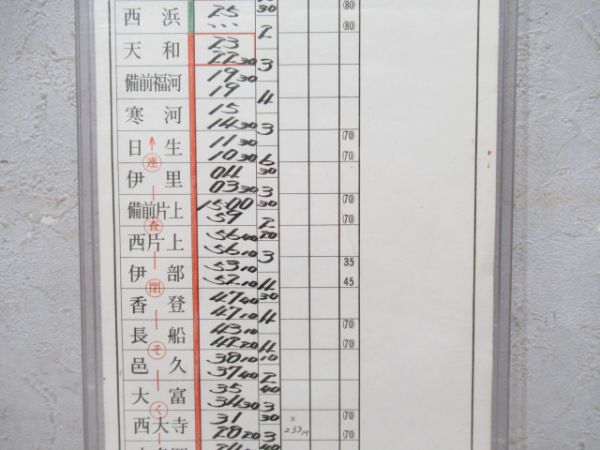 30 (80)
西浜 25 (80)
2
天和 23
22 30 3
備前福河 19 30
19 4
寒河 15
14 30 3
日生 11 30 (70)
10 30 6 (70)
連
伊里 04 30
03 30 3
備前片上 15:00 30 (70)
59 2 (70)
査
西片上 56 40 20
56 10 3
伊部 53 10 35
閉
52 10 4 45
香登 47 40 30
47 10 4
長船 43 10 (70)
そ
42 20 4 (70)
邑久 38 10 10
37 40 2
大富 35 40
34 30 3
く
西大寺 31 30 × (70)
28 20 3 233M (70)